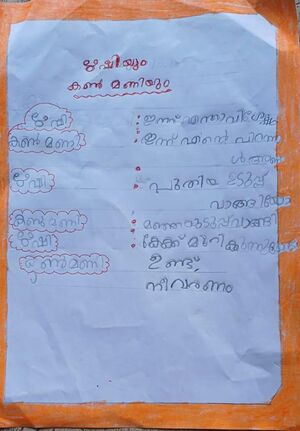 ഋഷിയും
കൺ മണിയും
ഋഷി : ഇന്ന് എന്താവിശേഷം
കൺ മണി : ഇന്ന് എന്റെ പിറന്ന
ൾ ആണ്
ഋഷി : പുതിയ ഉടുപ്പ്
വാങ്ങിയോ
കൺമണി : മഞ്ഞഉടുപ്പ്വാങ്ങി
ഋഷി : കേക്ക് മുറിക്കുന്നുണ്ടോ
കൺമണി : ഉണ്ട്,
നീവരണം